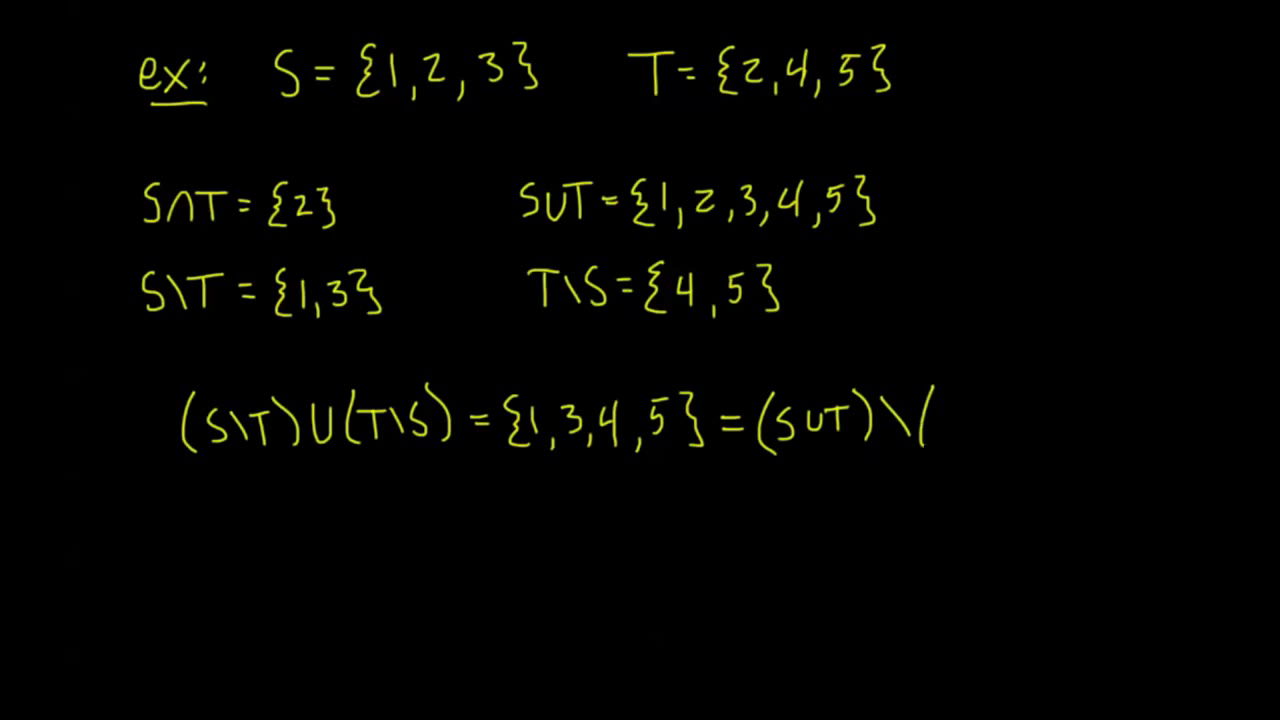 ex: S = {1, 2, 3} T = {2, 4, 5}
S∩T = {2} S∪T = {1, 2, 3, 4, 5}
S\T = {1, 3} T\S = {4, 5}
(S\T)∪(T\S) = {1, 3, 4, 5} = (S∪T)\(